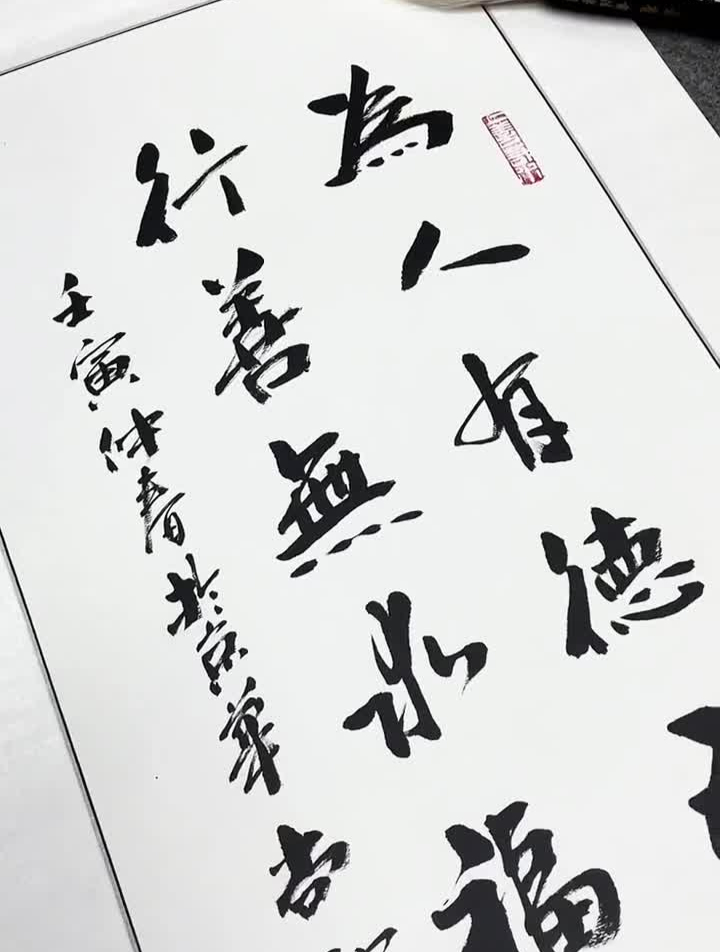 為人有德
行善無求福
壬寅仲春於京華尚